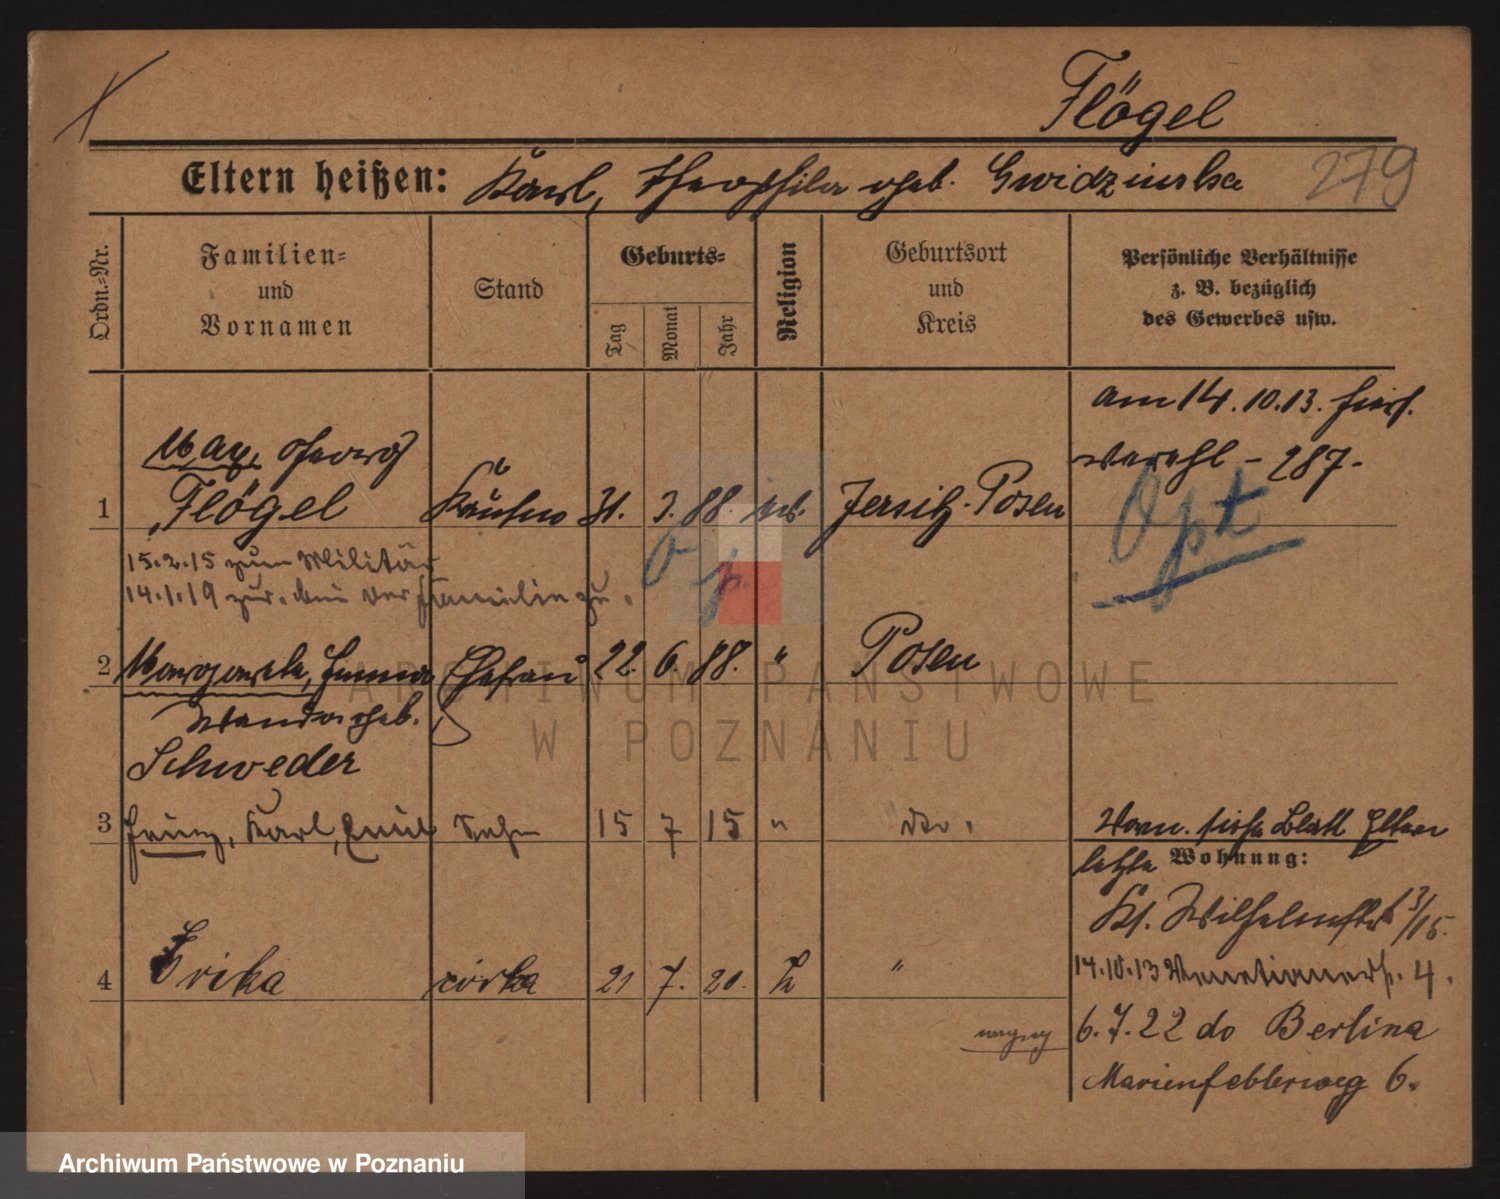 Flögel
Eltern heißen: Karl, Theophila geb. Gwidzinska 279
Ordn.-Nr.
Familien-
und
Vornamen
Stand
Geburts-
Tag
Monat
Jahr
Religion
Geburtsort
und
Kreis
Persönliche Verhältnisse
z. B. bezüglich
des Gewerbes usw.
am 14.10.13. hier
verehl - 287-
Max, Georg
1 Flögel 31. 3. 88. Jersitz-Posen
Opt
15.2.15 zum Militär
14.1.19 zur. der Familie zu.
2 Margarete, Emma Ehefrau 22. 6. 88. " Posen
Wanda geb.
Schweder
3 Franz, Karl, Emil Sohn 15 7 15 " do.
Vorn. siehe Blatt Eltern
letzte Wohnung:
Kl. Wilhelmstr 13/15.
4 Erika córka 21 7. 20. "
14.10.13 Venetianerstr. 4.
6.7.22 do Berlina
Marienfelderweg 6.
ARCHIWUM PAŃSTWOWE
W POZNANIU
Archiwum Państwowe w Poznaniu